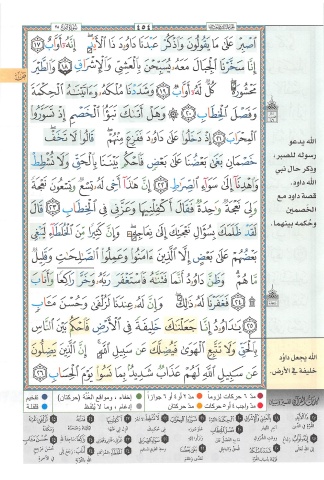 ٤٥٤
ٱصْبِرْ عَلَىٰ مَا يَقُولُونَ وَٱذْكُرْ عَبْدَنَا دَاوُۥدَ ذَا ٱلْأَيْدِ إِنَّهُۥٓ أَوَّابٌ ١٧
إِنَّا سَخَّرْنَا ٱلْجِبَالَ مَعَهُۥ يُسَبِّحْنَ بِٱلْعَشِيِّ وَٱلْإِشْرَاقِ ١٨ وَٱلطَّيْرَ
مَحْشُورَةً كُلٌّ لَّهُۥٓ أَوَّابٌ ١٩ وَشَدَدْنَا مُلْكَهُۥ وَءَاتَيْنَٰهُ ٱلْحِكْمَةَ
وَفَصْلَ ٱلْخِطَابِ ٢٠ وَهَلْ أَتَىٰكَ نَبَؤُا۟ ٱلْخَصْمِ إِذْ تَسَوَّرُوا۟
ٱلْمِحْرَابَ ٢١ إِذْ دَخَلُوا۟ عَلَىٰ دَاوُۥدَ فَفَزِعَ مِنْهُمْ قَالُوا۟ لَا تَخَفْ
خَصْمَانِ بَغَىٰ بَعْضُنَا عَلَىٰ بَعْضٍ فَٱحْكُم بَيْنَنَا بِٱلْحَقِّ وَلَا تُشْطِطْ
وَٱهْدِنَآ إِلَىٰ سَوَآءِ ٱلصِّرَٰطِ ٢٢ إِنَّ هَٰذَآ أَخِى لَهُۥ تِسْعٌ وَتِسْعُونَ نَعْجَةً
وَلِىَ نَعْجَةٌ وَٰحِدَةٌ فَقَالَ أَكْفِلْنِيهَا وَعَزَّنِى فِى ٱلْخِطَابِ ٢٣ قَالَ
لَقَدْ ظَلَمَكَ بِسُؤَالِ نَعْجَتِكَ إِلَىٰ نِعَاجِهِۦ وَإِنَّ كَثِيرًا مِّنَ ٱلْخُلَطَآءِ لَيَبْغِى
بَعْضُهُمْ عَلَىٰ بَعْضٍ إِلَّا ٱلَّذِينَ ءَامَنُوا۟ وَعَمِلُوا۟ ٱلصَّٰلِحَٰتِ وَقَلِيلٌ
مَّا هُمْ وَظَنَّ دَاوُۥدُ أَنَّمَا فَتَنَّٰهُ فَٱسْتَغْفَرَ رَبَّهُۥ وَخَرَّ رَاكِعًا وَأَنَابَ
٢٤ فَغَفَرْنَا لَهُۥ ذَٰلِكَ وَإِنَّ لَهُۥ عِندَنَا لَزُلْفَىٰ وَحُسْنَ مَـَٔابٍ
٢٥ يَٰدَاوُۥدُ إِنَّا جَعَلْنَٰكَ خَلِيفَةً فِى ٱلْأَرْضِ فَٱحْكُم بَيْنَ ٱلنَّاسِ
بِٱلْحَقِّ وَلَا تَتَّبِعِ ٱلْهَوَىٰ فَيُضِلَّكَ عَن سَبِيلِ ٱللَّهِ إِنَّ ٱلَّذِينَ يَضِلُّونَ
عَن سَبِيلِ ٱللَّهِ لَهُمْ عَذَابٌ شَدِيدٌۢ بِمَا نَسُوا۟ يَوْمَ ٱلْحِسَابِ ٢٦
الله يدعو
رسوله للصبر،
وذكر حال نبي
الله داود.
قصة داود مع
الخصمين
وحُكمه بينهما.
الله يجعل داود
خليفة في الأرض.
مد ٦ حركات لزوماً مد ٢ أو ٤ أو ٦ جوازاً إخفاء، ومواقع الغنة (حركتان) تفخيم
مد واجب ٤ أو ٥ حركات مد حركتان إدغام، وما لا يُلفَظ قلقلة